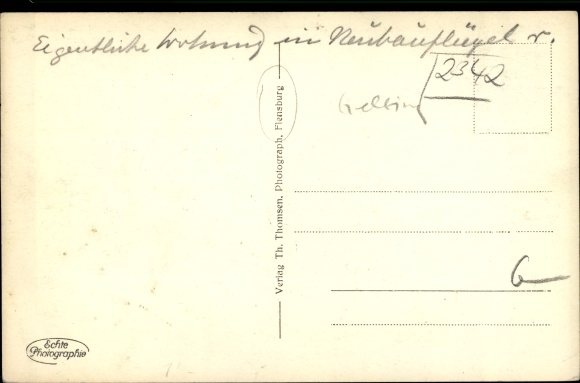 Eigentliche Wohnung im Neubauflügel r.
2342
Verlag Th. Thomsen, Photograph, Flensburg
6
Echte
Photographie